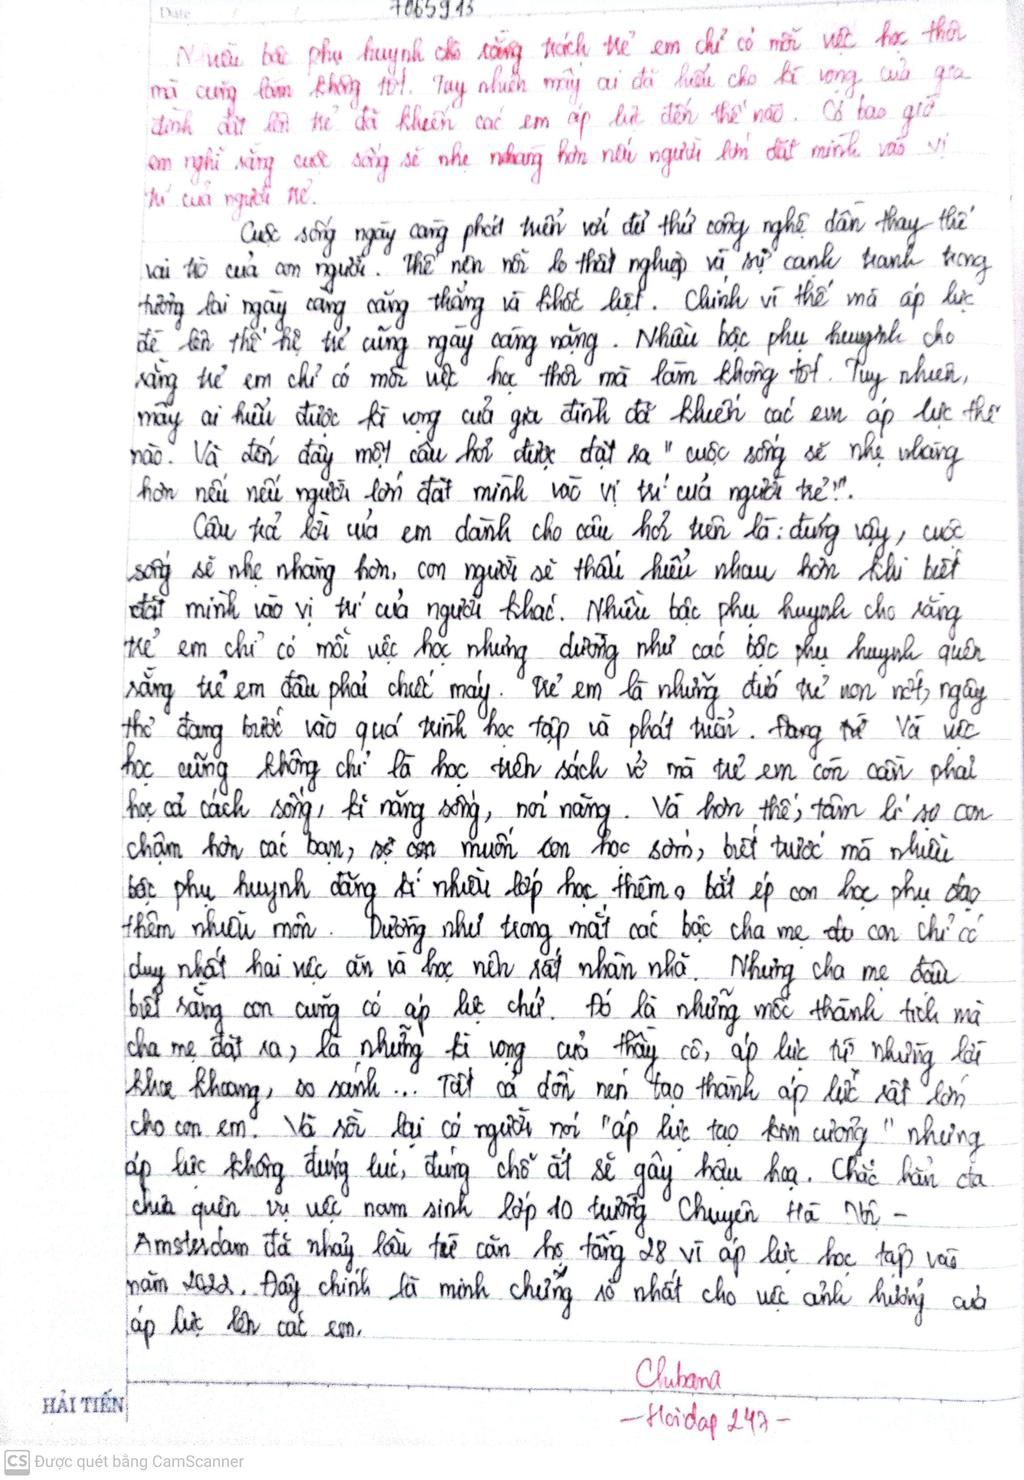 Date
7065913
Nhiều bậc phụ huynh cho rằng trách trẻ em chỉ có mỗi việc học thôi
mà cũng làm không tốt. Tuy nhiên mấy ai đã hiểu cho kì vọng của gia
đình đặt lên trẻ đã khiến các em áp lực đến thế nào. Có bao giờ
em nghĩ rằng cuộc sống sẽ nhẹ nhàng hơn nếu người lớn đặt mình vào vị
trí của người trẻ.
Cuộc sống ngày càng phát triển với đủ thứ công nghệ dần thay thế
vai trò của con người. Thế nên nỗi lo thất nghiệp và sự cạnh tranh trong
tương lai ngày càng căng thẳng và khốc liệt. Chính vì thế mà áp lực
đè lên thế hệ trẻ cũng ngày càng nặng. Nhiều bậc phụ huynh cho
rằng trẻ em chỉ có mỗi việc học thôi mà làm không tốt. Tuy nhiên,
mấy ai hiểu được kì vọng của gia đình đã khiến các em áp lực thế
nào. Và đến đây một câu hỏi được đặt ra "cuộc sống sẽ nhẹ nhàng
hơn nếu nếu người lớn đặt mình vào vị trí của người trẻ?".
Câu trả lời của em dành cho câu hỏi trên là: đúng vậy, cuộc
sống sẽ nhẹ nhàng hơn, con người sẽ thấu hiểu nhau hơn khi biết
đặt mình vào vị trí của người khác. Nhiều bậc phụ huynh cho rằng
trẻ em chỉ có mỗi việc học nhưng dường như các bậc phụ huynh quên
rằng trẻ em đâu phải chiếc máy. Trẻ em là những đứa trẻ non nớt, ngây
thơ đang bước vào quá trình học tập và phát triển. Đang trẻ Và việc
học cũng không chỉ là học trên sách vở mà trẻ em còn cần phải
học cả cách sống, kĩ năng sống, nói năng. Và hơn thế, tâm lí sợ con
chậm hơn các bạn, sợ con muốn con học sớm, biết trước mà nhiều
bậc phụ huynh đăng kí nhiều lớp học thêm, bắt ép con học phụ đạo
thêm nhiều môn. Dường như trong mắt các bậc cha mẹ do con chỉ có
duy nhất hai việc ăn và học nên rất nhàn nhã. Nhưng cha mẹ đâu
biết rằng con cũng có áp lực chứ. Đó là những mốc thành tích mà
cha mẹ đặt ra, là những kì vọng của thầy cô, áp lực từ những lời
khoe khoang, so sánh... Tất cả dồn nén tạo thành áp lực rất lớn
cho con em. Và rồi lại có người nói "áp lực tạo kim cương" nhưng
áp lực không đúng lúc, đúng chỗ ắt sẽ gây hậu họa. Chắc hẳn ta
chưa quên vụ việc nam sinh lớp 10 trường Chuyên Hà Nội -
Amsterdam đã nhảy lầu từ căn hộ tầng 28 vì áp lực học tập vào
năm 2022. Đây chính là minh chứng rõ nhất cho việc ảnh hưởng của
áp lực lên các em.
Chubana
-Hoidap 247-
HẢI TIẾN
CS Được quét bằng CamScanner